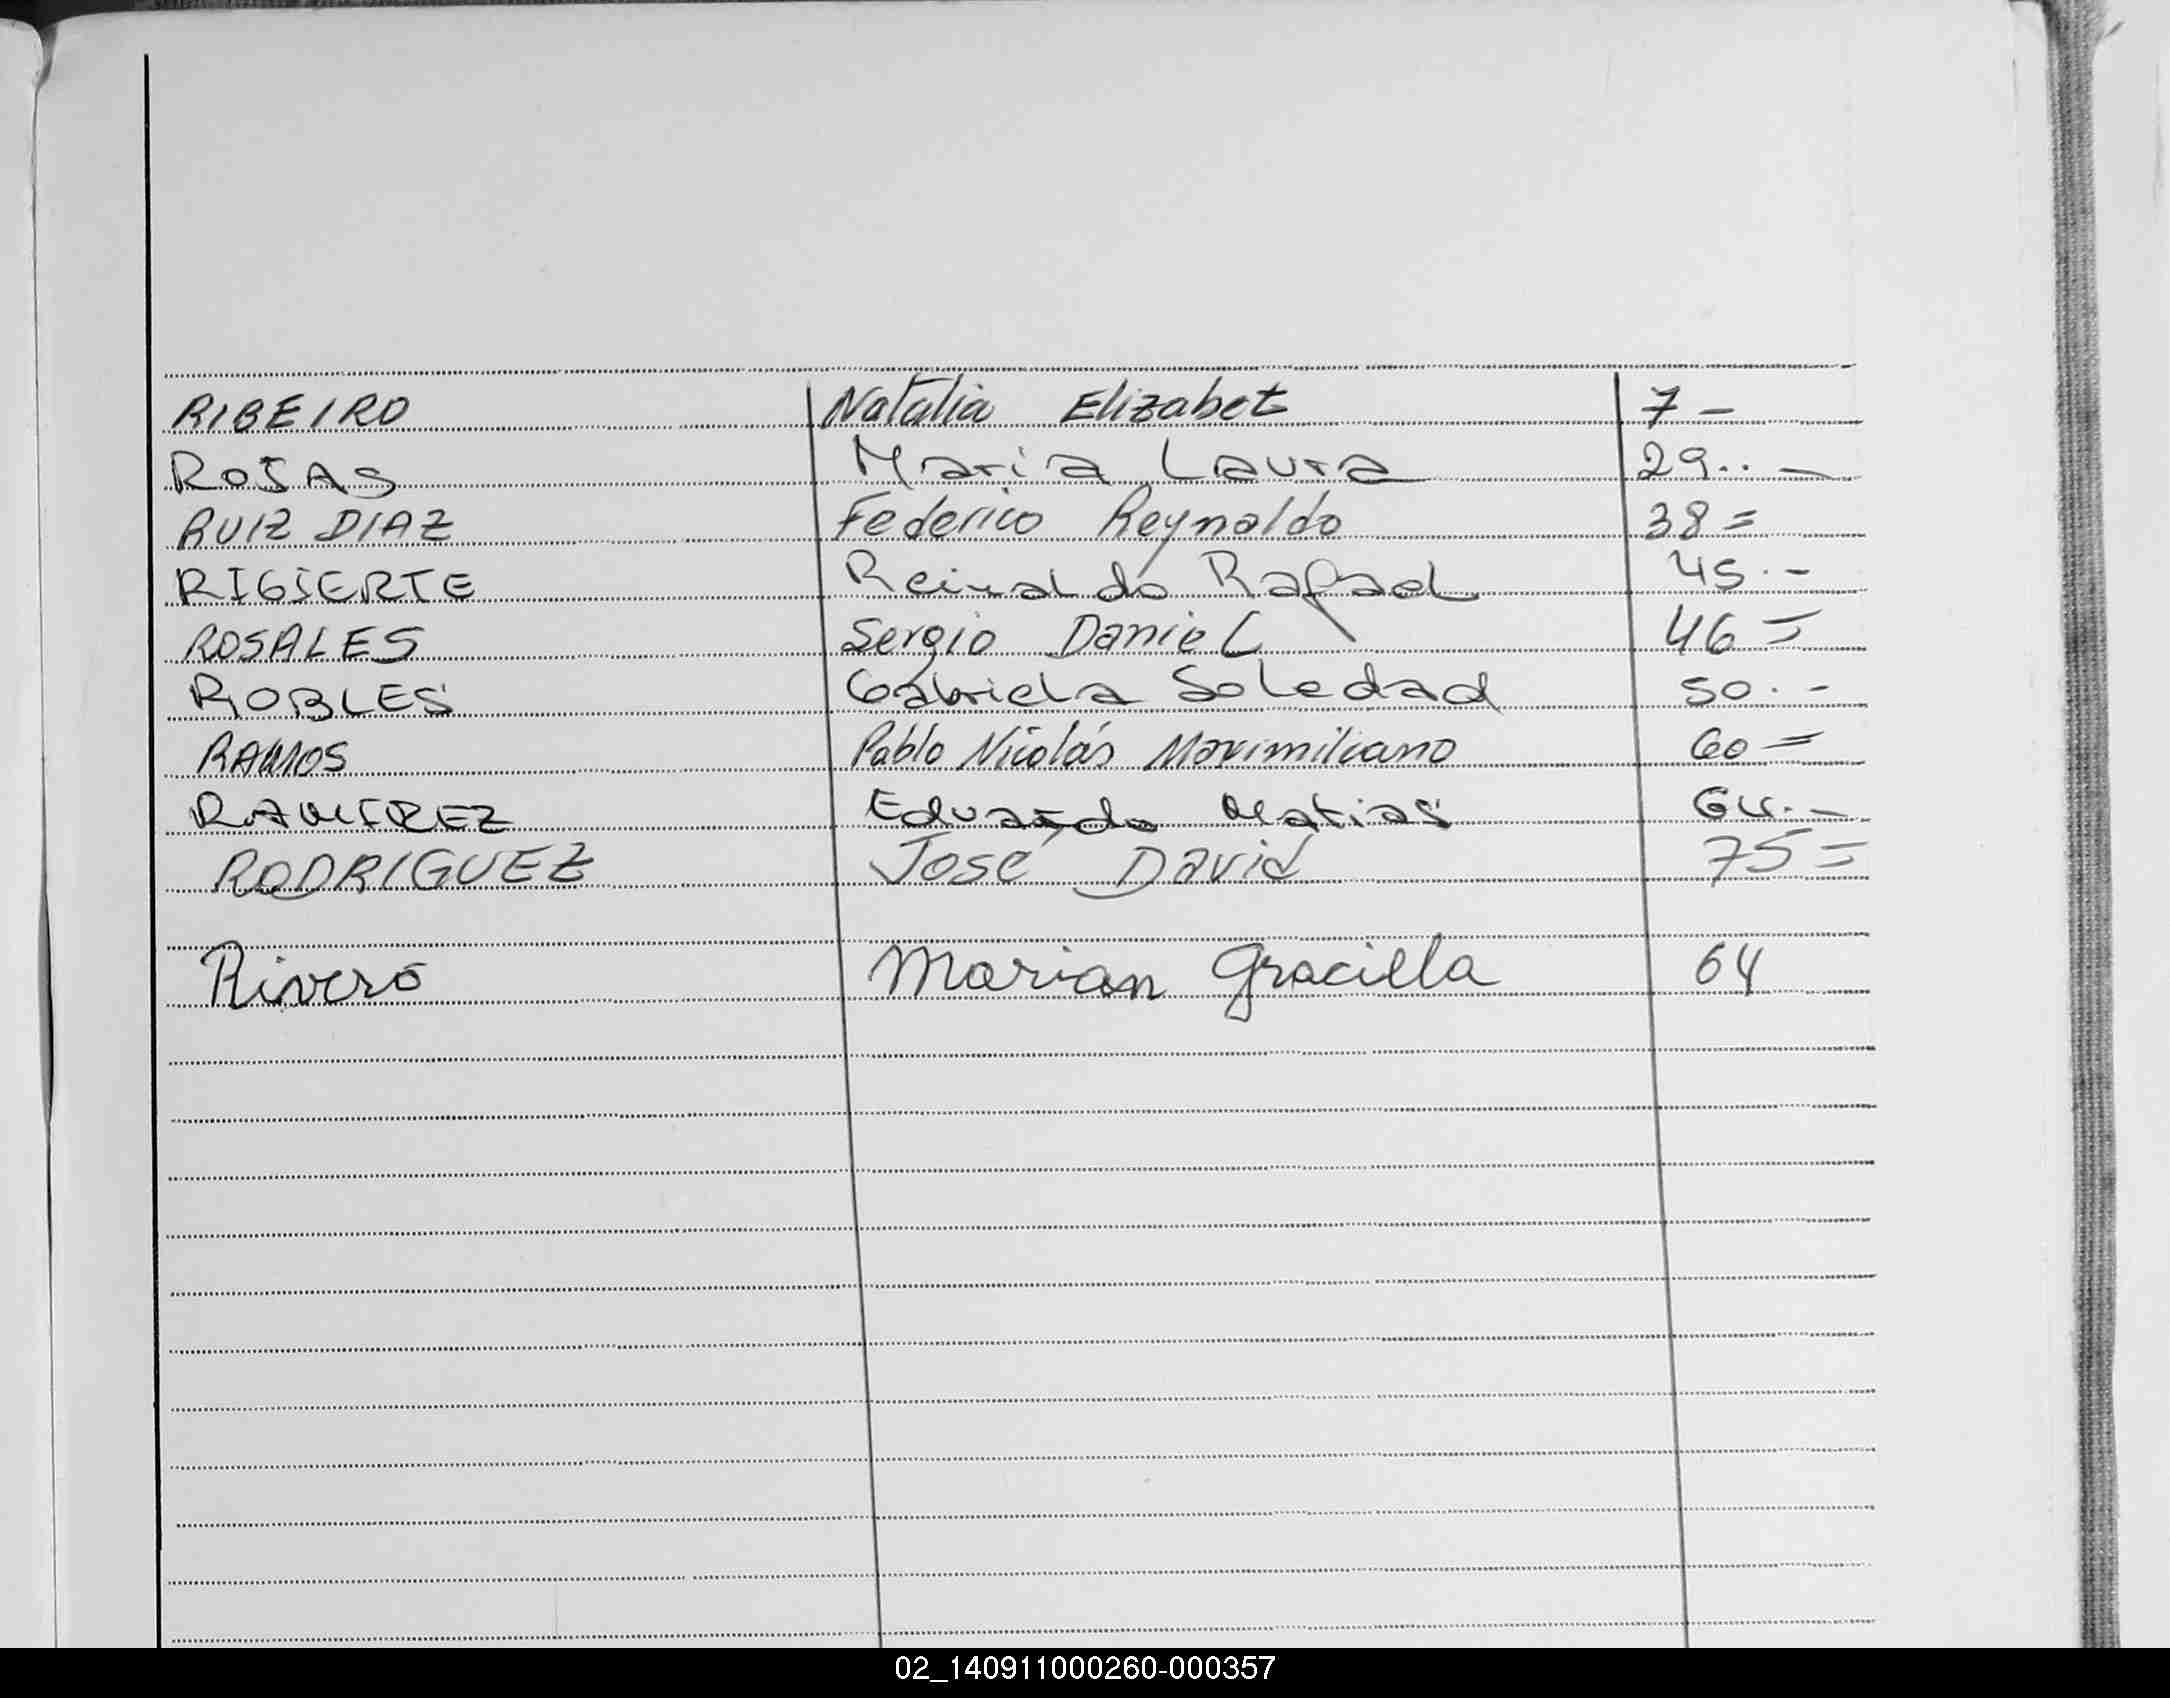 RIBEIRO Natalia Elizabet 7 -
ROJAS Maria Laura 29.. -
RUIZ DIAZ Federico Reynaldo 38 =
RIGIERTE Reinaldo Rafael 45. -
ROSALES Sergio Daniel 46 =
ROBLES Gabriela Soledad 50. -
RAMOS Pablo Nicolás Maximiliano 60 =
RAMIREZ Eduardo Matias 64. -
RODRIGUEZ José David 75 =
Rivero Marian Graciella 64
02_140911000260-000357